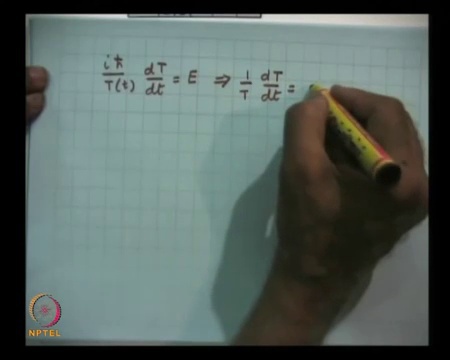 iħ/T(t) dT/dt = E ⇒ 1/T dT/dt =
NPTEL